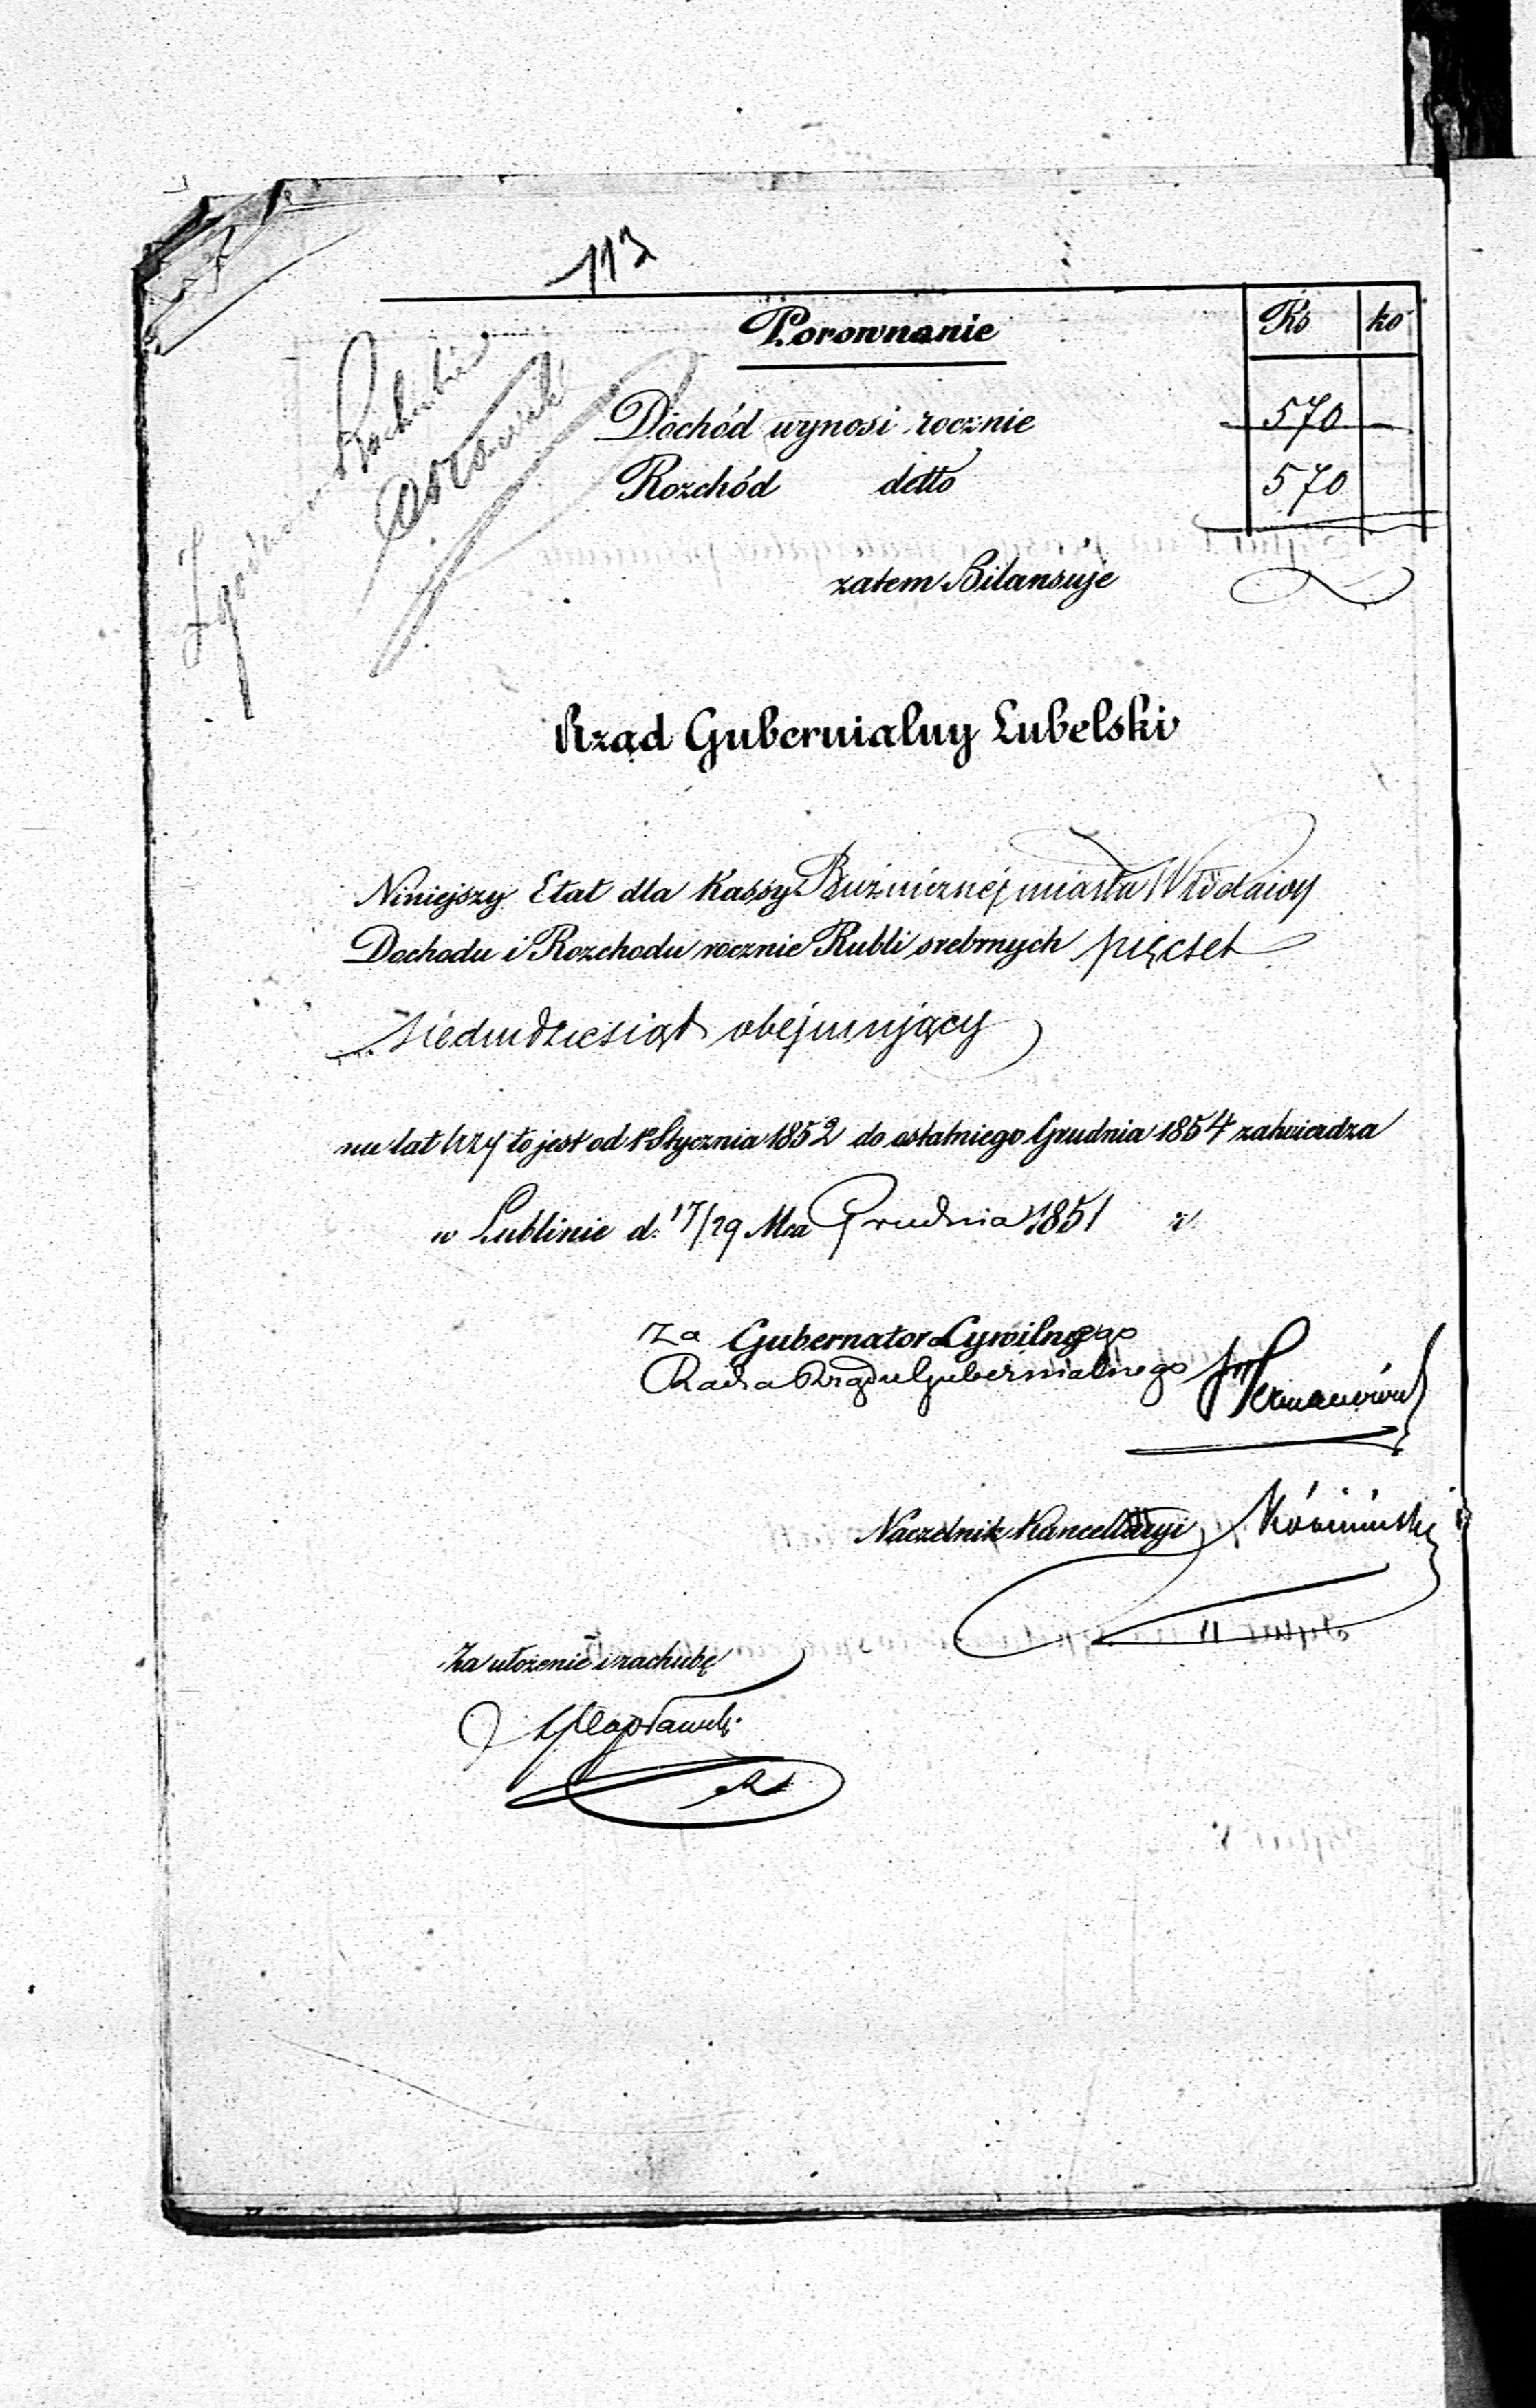 113
Porownanie
Rs ko
Dochód wynosi rocznie 570 —
Rozchód detto 570
zatem Bilansuje
Rząd Gubernialny Lubelski
Niniejszy Etat dla Kassy Buźnicznéj miasta Włodawy
Dochodu i Rozchodu rocznie Rubli srebrnych pięćset
siedmdziesiąt obejmujący
na lat trzy to jest od 1º Stycznia 1852 do ostatniego Grudnia 1854 zatwierdza
w Lublinie d: 17/29 Mca Grudnia 1851 r.
Za Gubernatora Cywilnego
Radca Rządu Gubernialnego
Naczelnik Kancellaryi
Za ułożenie i rachubę